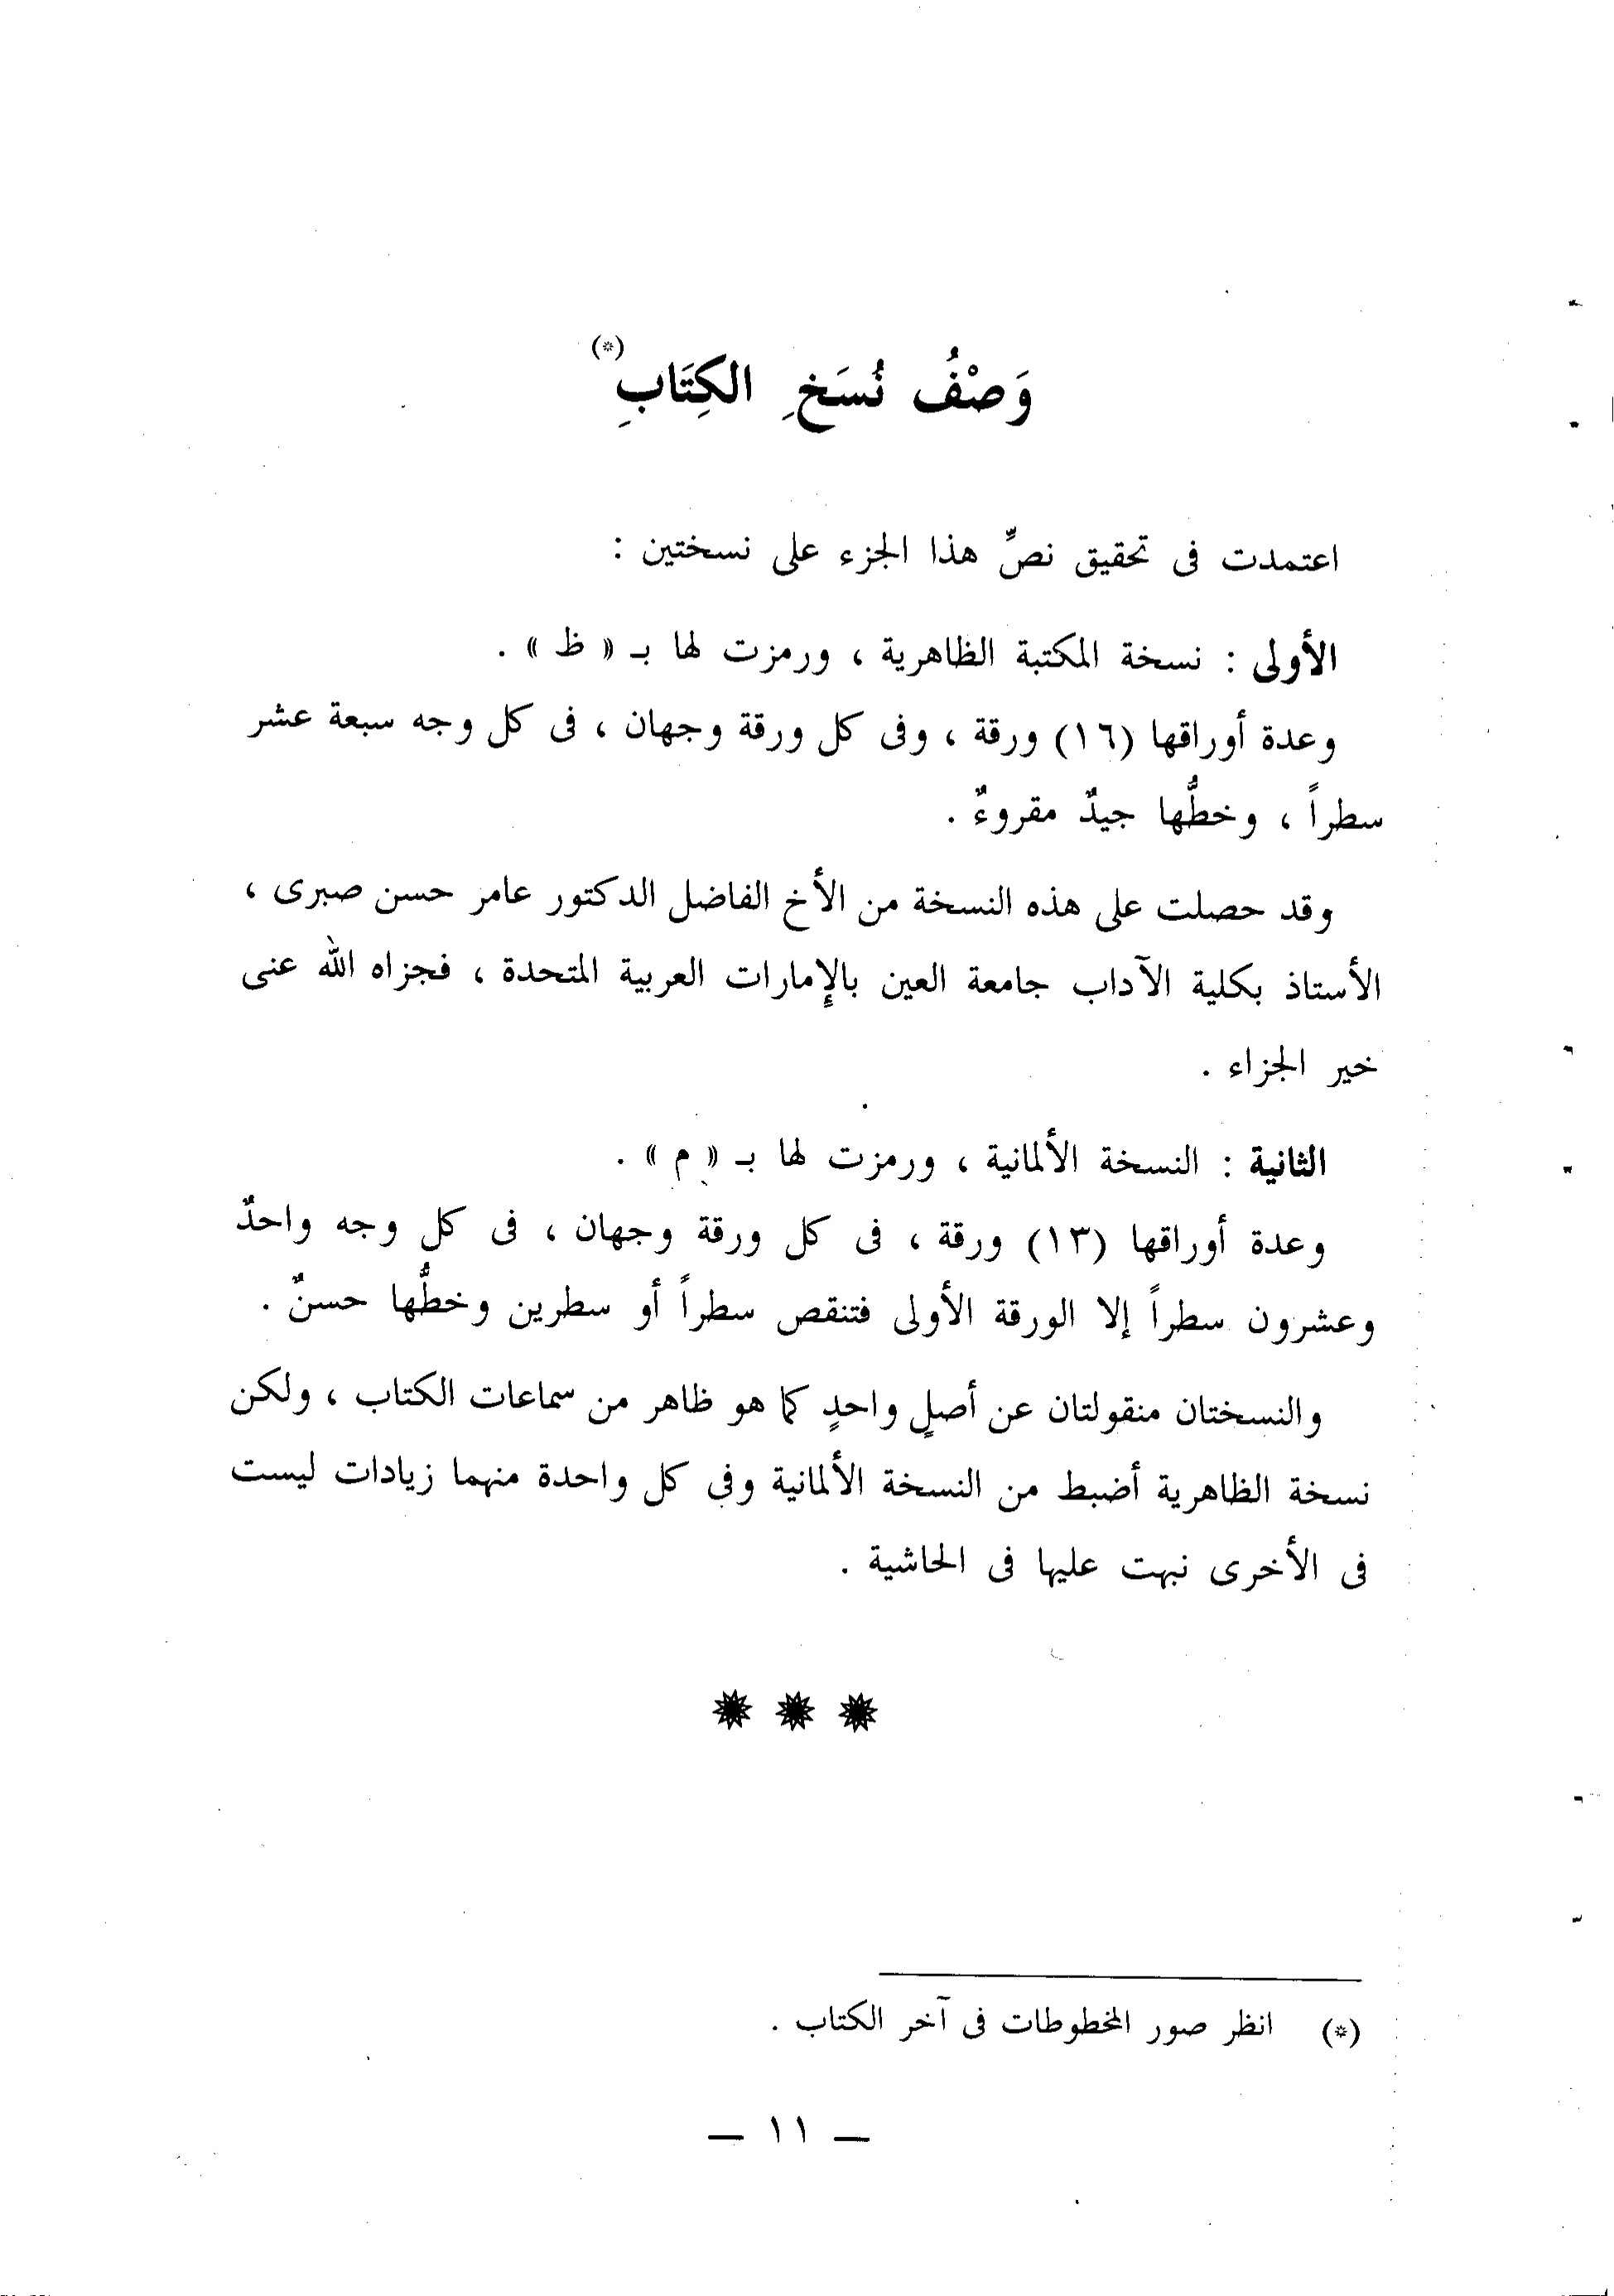 وَصْفُ نُسَخِ الكِتَابِ (*)
اعتمدت فى تحقيق نصِّ هذا الجزء على نسختين :
الأولى : نسخة المكتبة الظاهرية ، ورمزت لها بـ « ظ » .
وعدة أوراقها (١٦) ورقة ، وفى كل ورقة وجهان ، فى كل وجه سبعة عشر
سطراً ، وخطُّها جيدٌ مقروءٌ .
وقد حصلت على هذه النسخة من الأخ الفاضل الدكتور عامر حسن صبرى ،
الأستاذ بكلية الآداب جامعة العين بالإمارات العربية المتحدة ، فجزاه الله عنى
خير الجزاء .
الثانية : النسخة الألمانية ، ورمزت لها بـ « م » .
وعدة أوراقها (١٣) ورقة ، فى كل ورقة وجهان ، فى كل وجه واحدٌ
وعشرون سطراً إلا الورقة الأولى فتنقص سطراً أو سطرين وخطُّها حسنٌ .
والنسختان منقولتان عن أصلٍ واحدٍ كما هو ظاهر من سماعات الكتاب ، ولكن
نسخة الظاهرية أضبط من النسخة الألمانية وفى كل واحدة منهما زيادات ليست
فى الأخرى نبهت عليها فى الحاشية .
(*) انظر صور المخطوطات فى آخر الكتاب .
ـ ١١ ـ